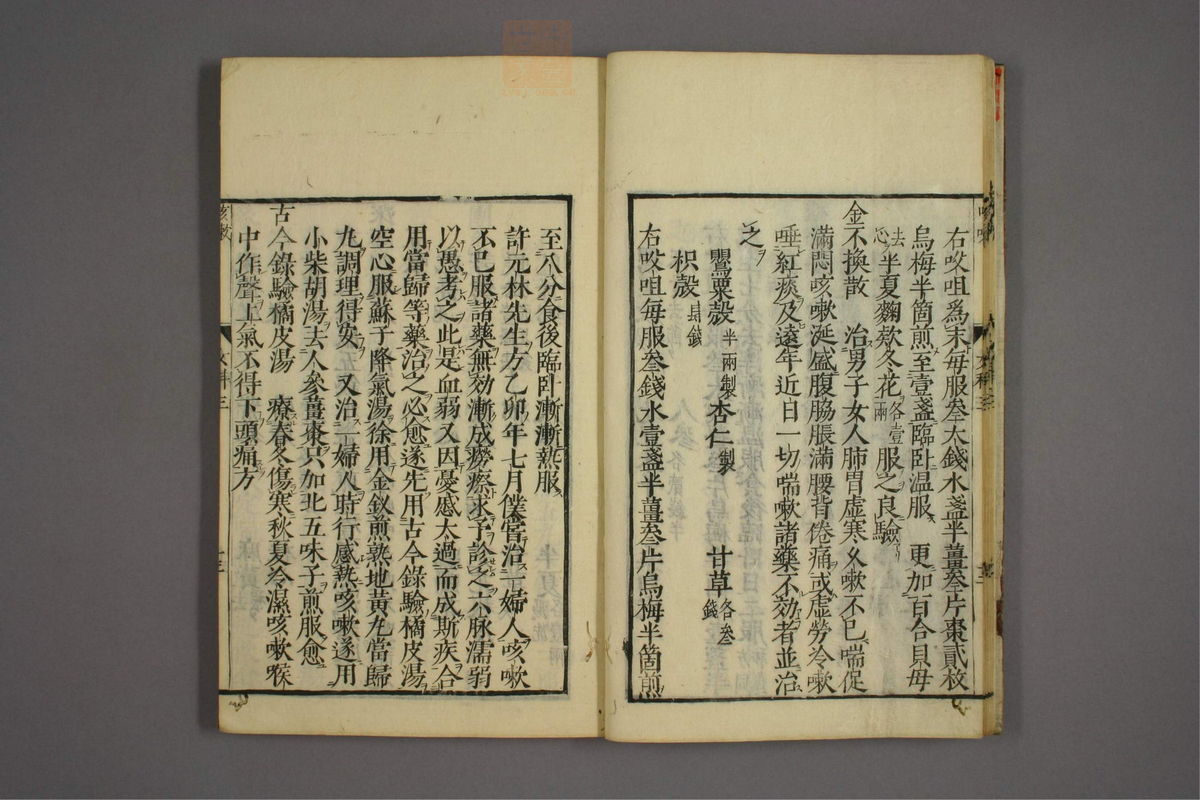 右㕮咀爲末每服叁大錢水盞半薑叁片棗貳枚
烏梅半箇煎至壹盞臨卧温服 更加百合貝母
去心半夏麴欵冬花各壹兩服之良驗
金不換散 治男子女人肺胃虚寒久嗽不已喘促
滿悶咳嗽涎盛腹脇脹滿腰背倦痛或虚勞冷嗽
唾紅痰及遠年近日一切喘嗽諸藥不効者並治
之
罌粟殼半兩製 杏仁製 甘草各叁錢
枳殼錢
右㕮咀每服叁錢水壹盞半薑叁片烏梅半箇煎
咳嗽
文科三
十三
至八分食後臨卧漸漸熱服
許元林先生方乙卯年七月僕嘗治一婦人咳嗽
不已服諸藥無効漸成癆瘵求予診之六脉濡弱
以愚考之此是血弱又因憂慼太過而成斯疾合
用當歸等藥治之必愈遂先用古今錄驗橘皮湯
空心服蘇子降氣湯徐用金釵煎熟地黄丸當歸
丸調理得安 又治一婦人時行感熱咳嗽遂用
小柴胡湯去人參薑棗只加北五味子煎服愈
古今錄驗橘皮湯 療春冬傷寒秋夏冷濕咳嗽喉
中作聲上氣不得下頭痛方